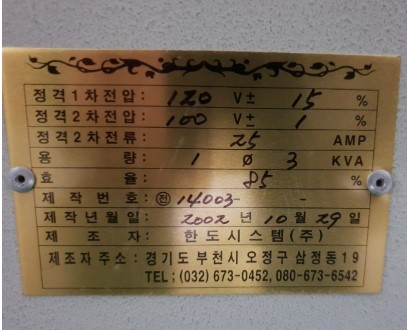 정격1차전압: 120 V± 15 %
정격2차전압: 100 V± 1 %
정격2차전류: 25 AMP
용 량: 1 Ø 3 KVA
효 율: 85 %
제작번호: ㉠ 14003- -
제작년월일: 2002년 10월 29일
제 조 자: 한도시스템(주)
제조자주소: 경기도 부천시 오정구 삼정동19
TEL: (032) 673-0452, 080-673-6542